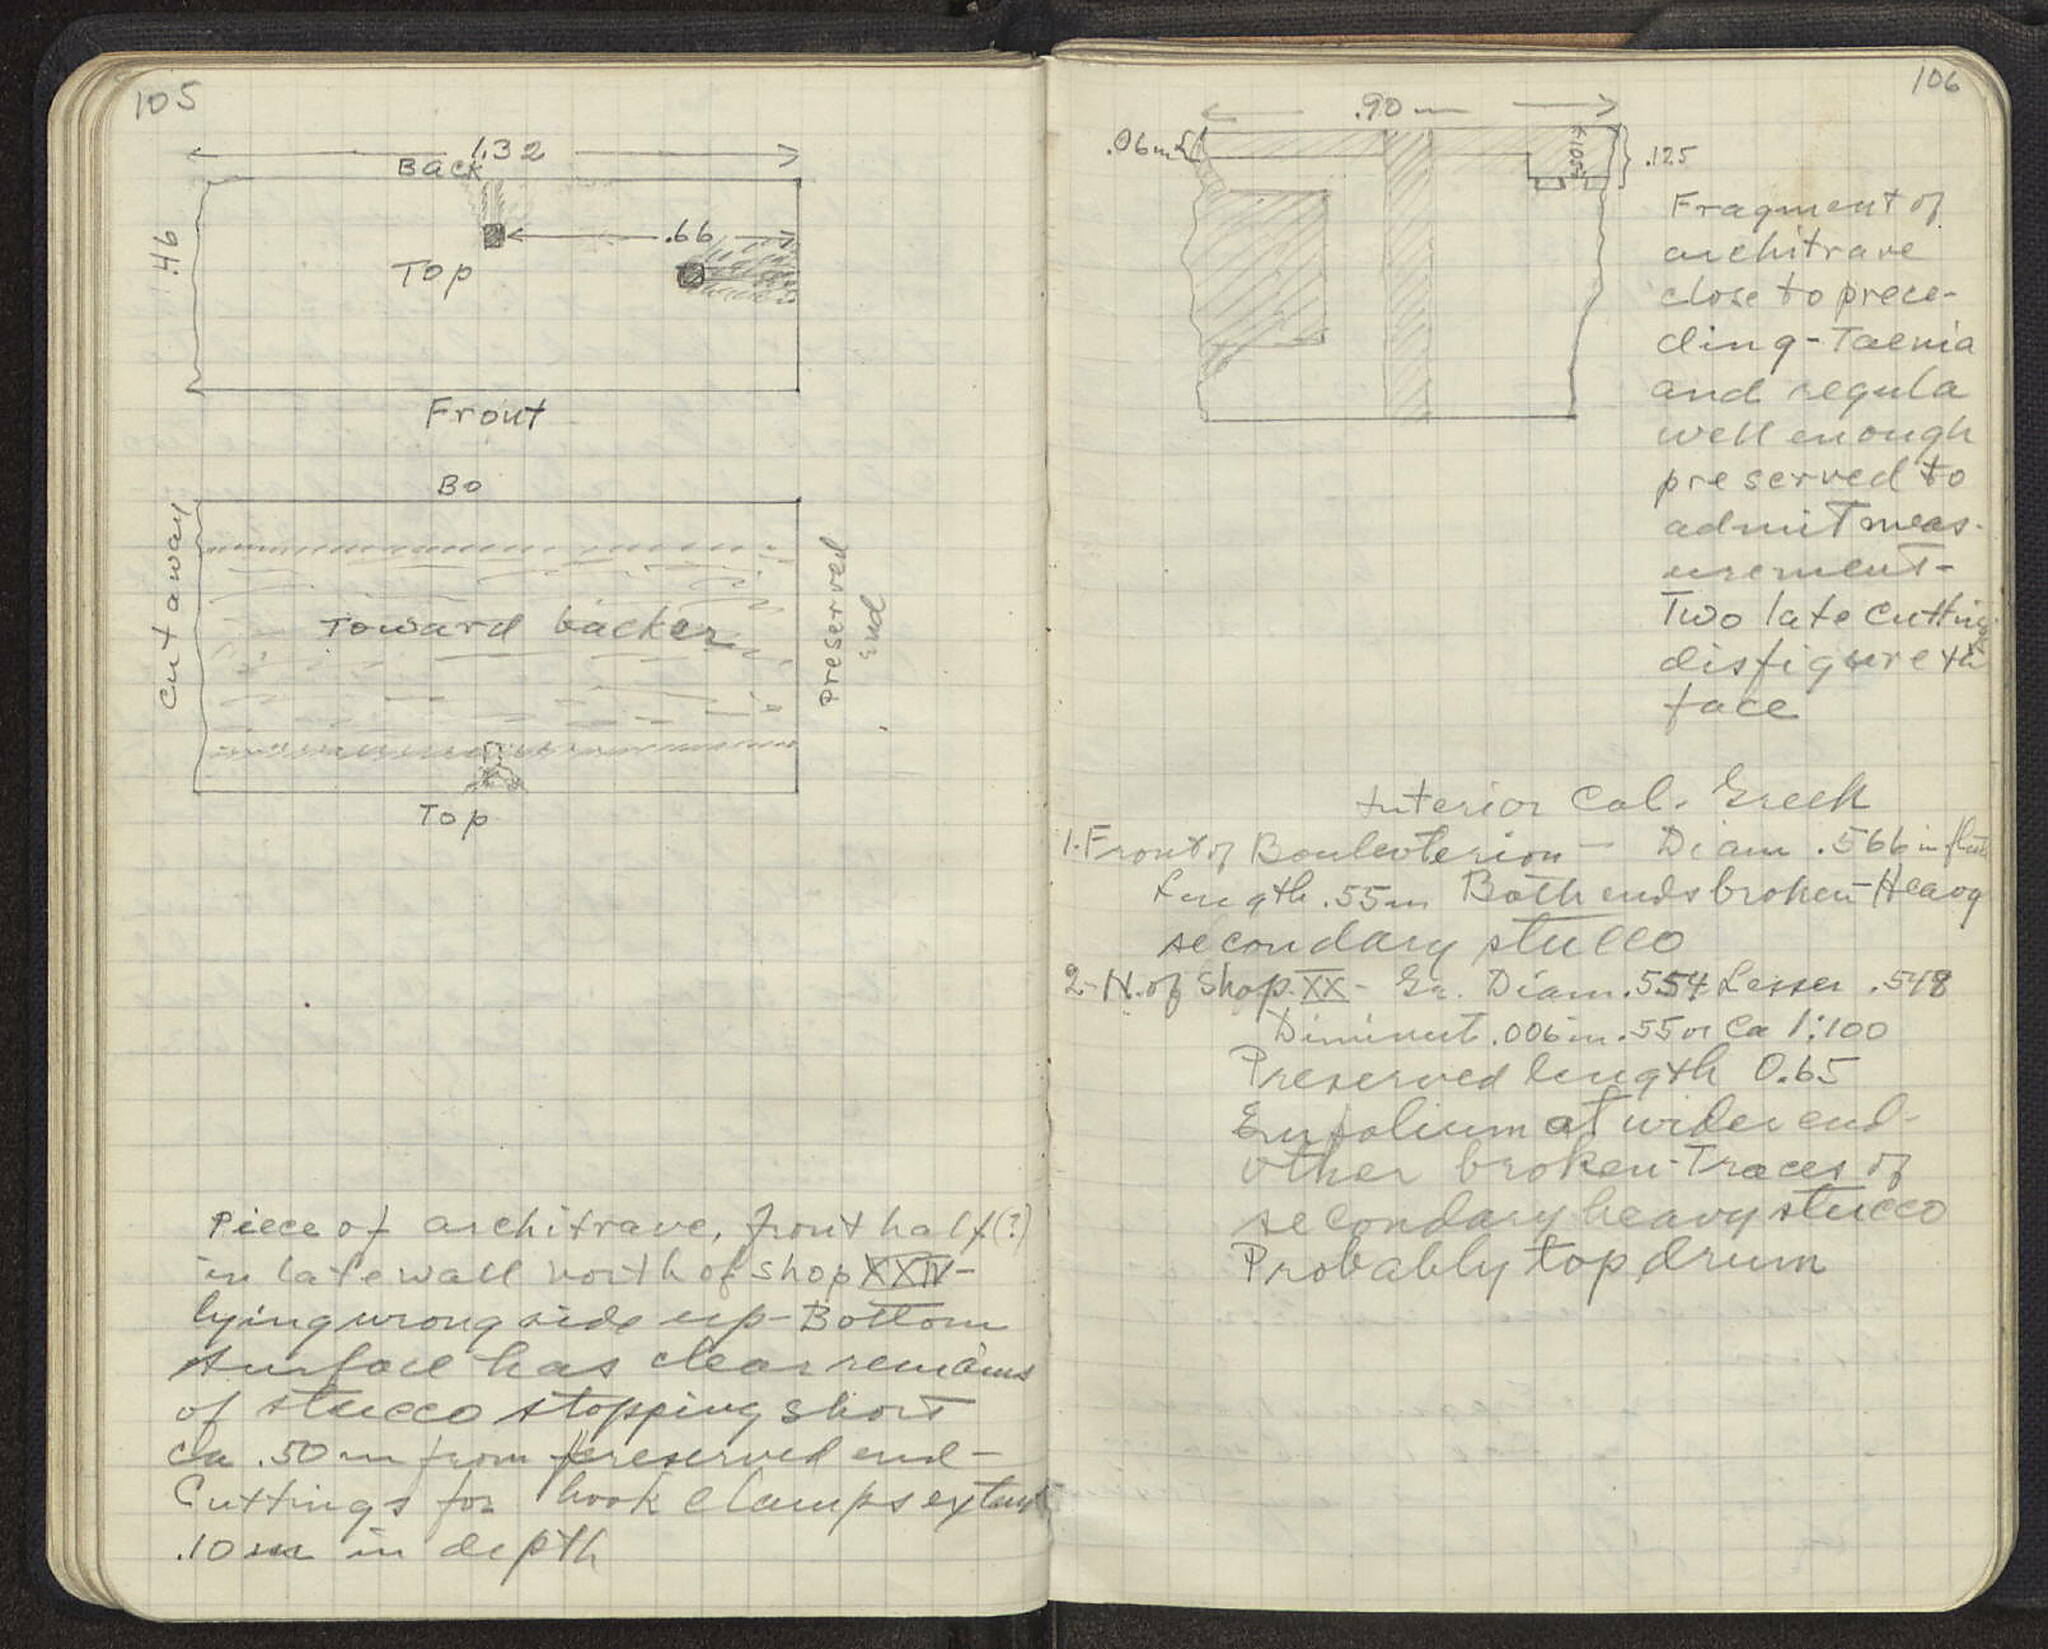 105
1.32
Back
.66
.46
Top
Front
Bo
Cut away
Toward backer
preserved
end
Top
Piece of architrave, front half (?)
in late wall north of Shop XXIV-
lying wrong side up - Bottom
surface has clear remains
of stucco stopping short
ca .50 m from preserved end -
Cuttings for hook clamps extant
.10 m in depth
106
.90 m
.06 m
.105
.125
Fragment of
architrave
close to prece-
ding - Taenia
and regula
well enough
preserved to
admit meas-
urement -
Two late cuttings
disfigure the
face
Interior Col. Greek
1. Front of Bouleuterion - Diam .566 in flutes
Length .55m Both ends broken - Heavy
secondary stucco
2 - N. of Shop XX - Gr. Diam .554 Lesser .548
Diminut .006 in .55 or Ca 1:100
Preserved length 0.65
Empolium at wider end -
other broken - Traces of
secondary heavy stucco
Probably top drum